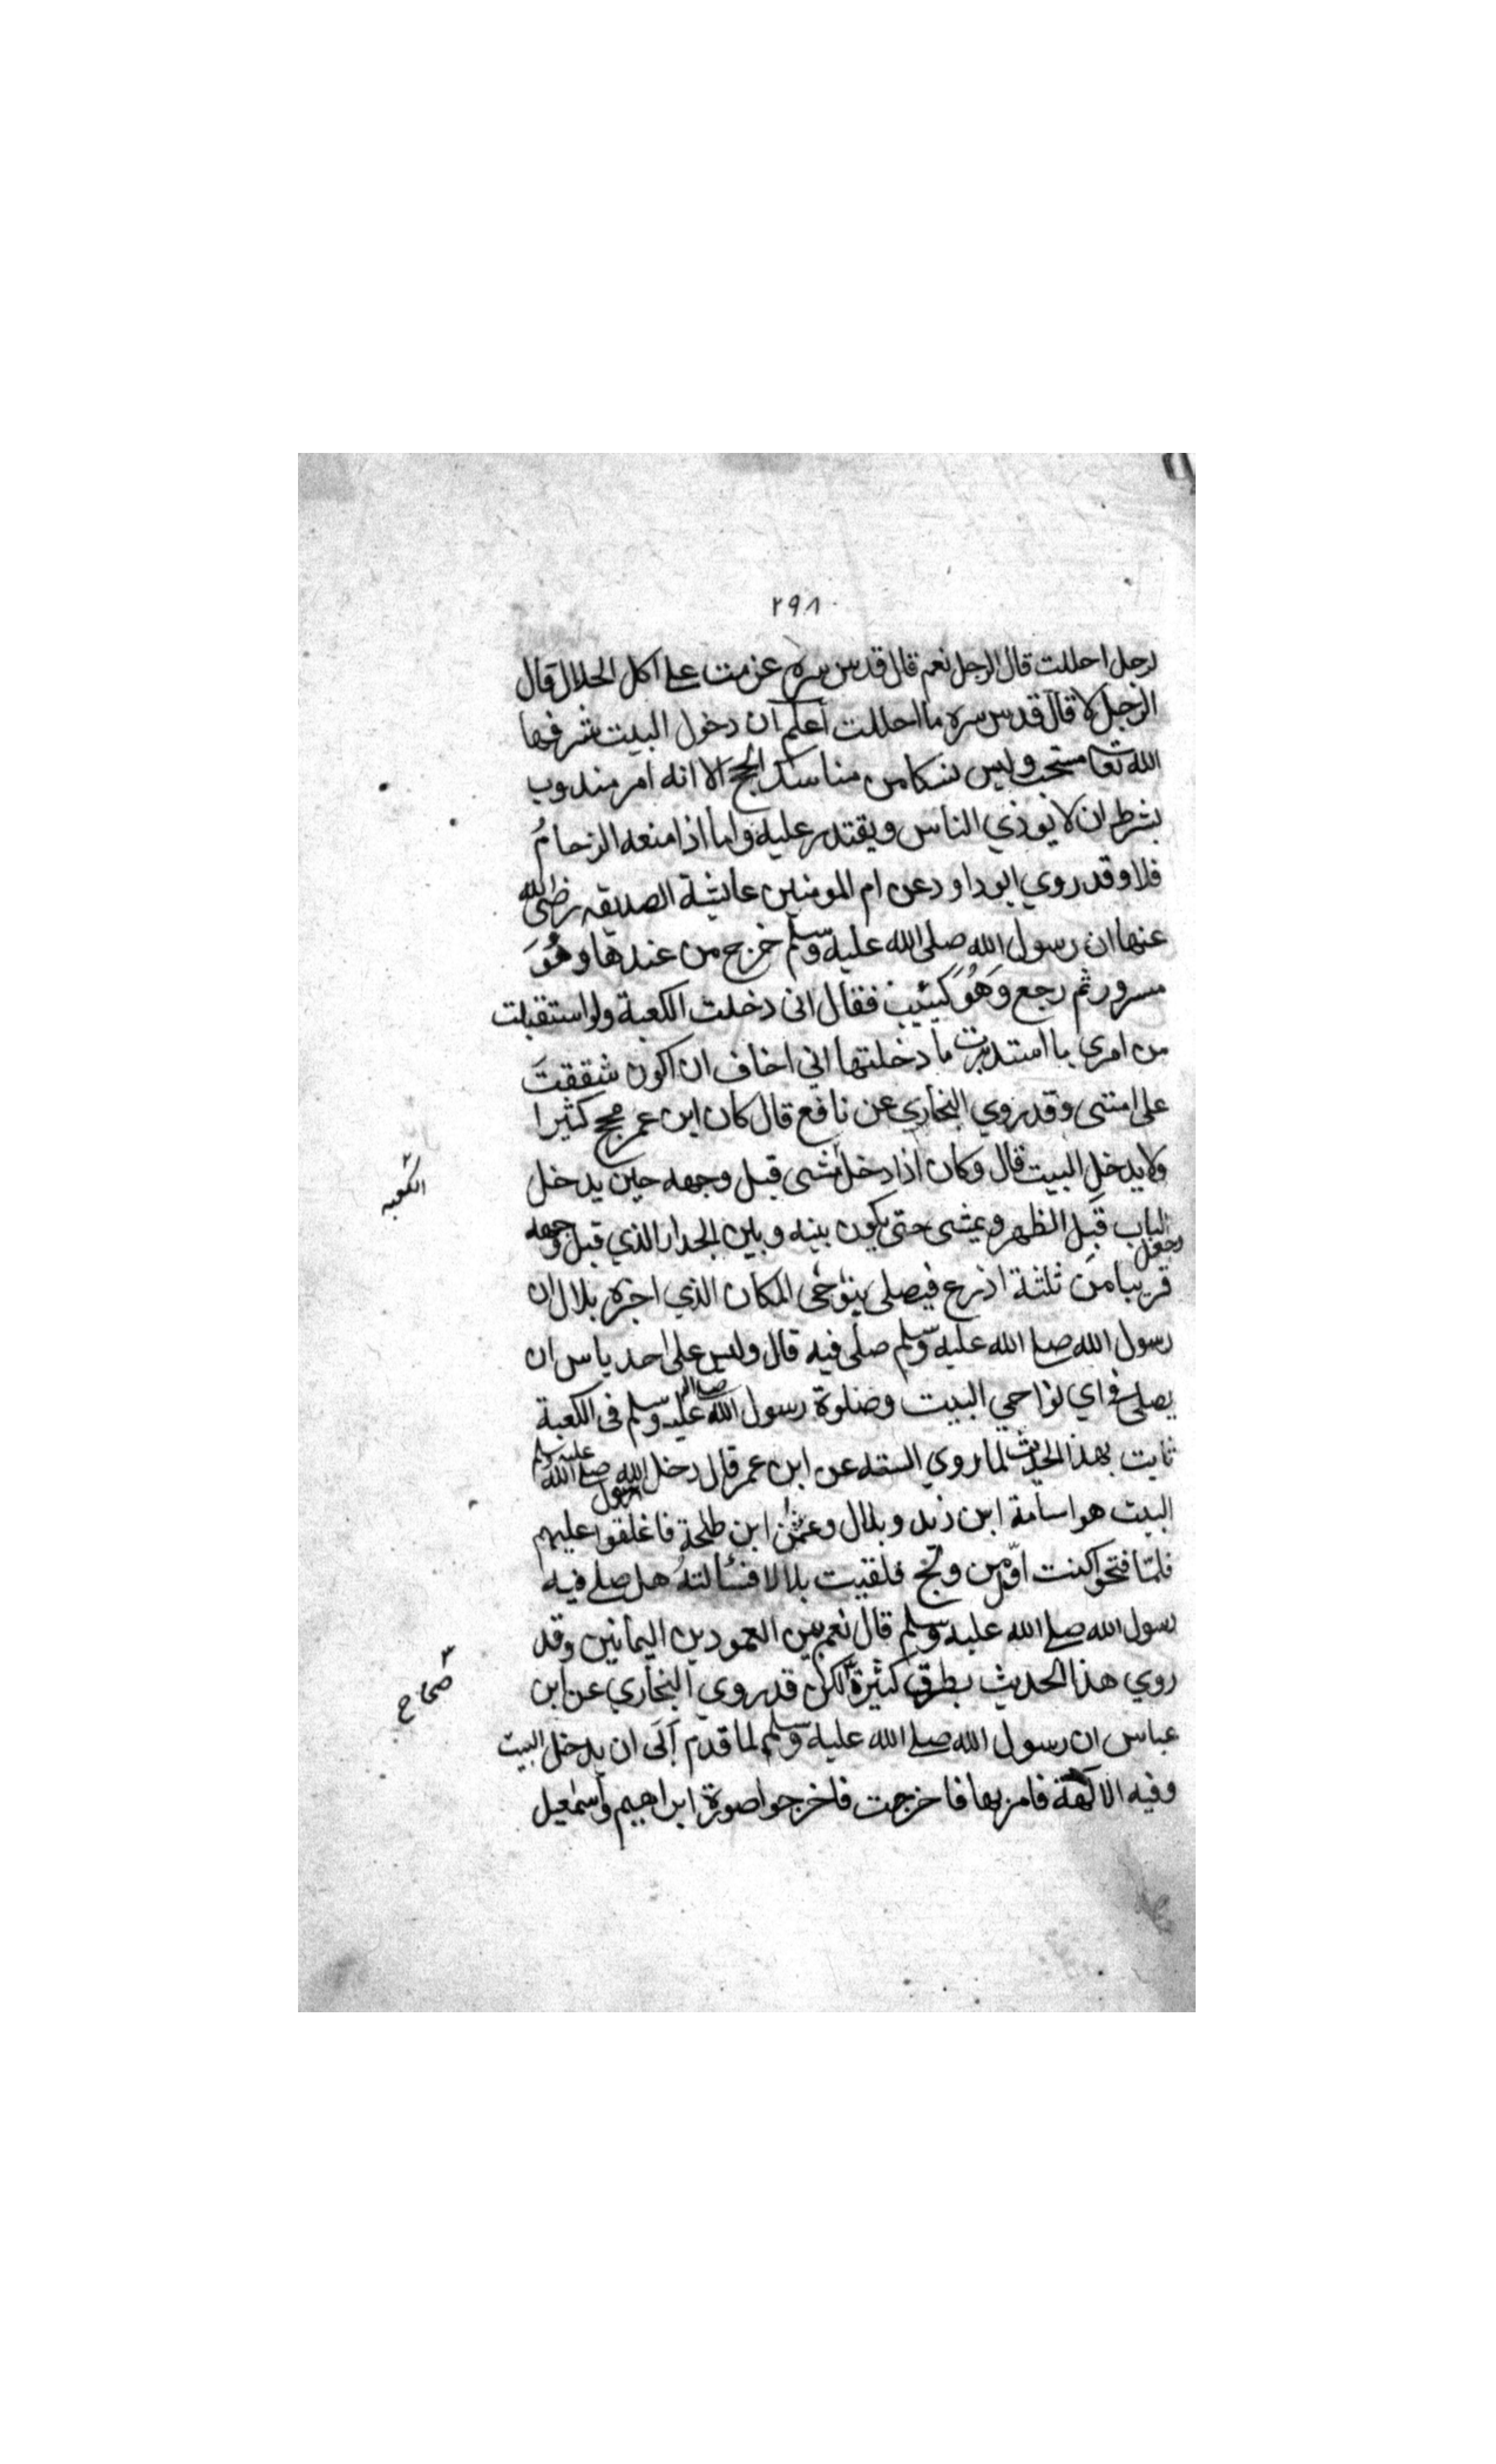 ٢٩٨
لرجل احللت قال الرجل نعم قال قدس سره عزمت على اكل الحلال قال
الرجل لا قال قدس سره ما احللت أعلم ان دخول البيت شرفها
الله تعا مستحب وليس نسكا من مناسك الحج الا انه امر مندوب
بشرط ان لا يوذي الناس ويقتدر عليه واما اذا منعه الزحامُ
فلا وقد روي ابو داود عن ام المومنين عائشة الصديقه رضى الله
عنها ان رسول الله صلى الله عليه وسلم خرج من عندها وهُوَ
مسرور ثم رجع وَهُوَ كيئيب فقال انى دخلت الكعبة ولو استقبلت
من امري ما استدبرت ما دخلتها اني اخاف ان اكون شققتَ
على امتى وقد روي البخاري عن نافع قال كان ابن عمر يحج كثيرا
ولا يدخل البيت قال وكان اذا دخل مشى قبل وجهه حين يدخل
الكعبه
وجعل
الباب قِبَل الظهر ويمشى حتى يكون بينه وبين الجدار الذي قبل وجهه
قريبا من ثلثة اذرع فيصلى يتوخى المكان الذي اخبره بلال ان
رسول الله صلے الله عليه وسلم صلى فيه قال وليس على احد باس ان
يصلى فى اي نواحي البيت وصلوة رسول الله صلى الله عليه وسلم فى الكعبة
ثابت بهذ الحديث لما روي السته عن ابن عمر قال دخل رسول الله صلے الله عليه وسلم
البيت هو اسامة ابن زيد وبلال وعثمٰن ابن طلحة فاغلقوا عليهم
فلمّا فتحوا كنت اوّل من ولج فلقيت بلالا فسألتهُ هل صلے فيه
رسول الله صلے الله عليه وسلم قال نعم بين العمودين اليمانين وقد
روي هذا الحديث بطرق كثيرة لكن قد روي البخاري عن ابن
صحاح
عباس ان رسول الله صلے الله عليه وسلم لما قدم اَبَى ان يدخل البيت
وفيه الالهة فامر بها فاخرجت فاخرجوا صورة ابراهيم واسمٰعيل